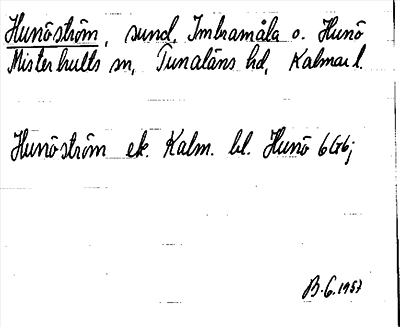 Hunöström, sund, Imbramåla o. Hunö
Misterhults sn, Tunaläns hd, Kalmar l.
Hunöström ek. Kalm. bl. Hunö 6G6j
B.G. 1957